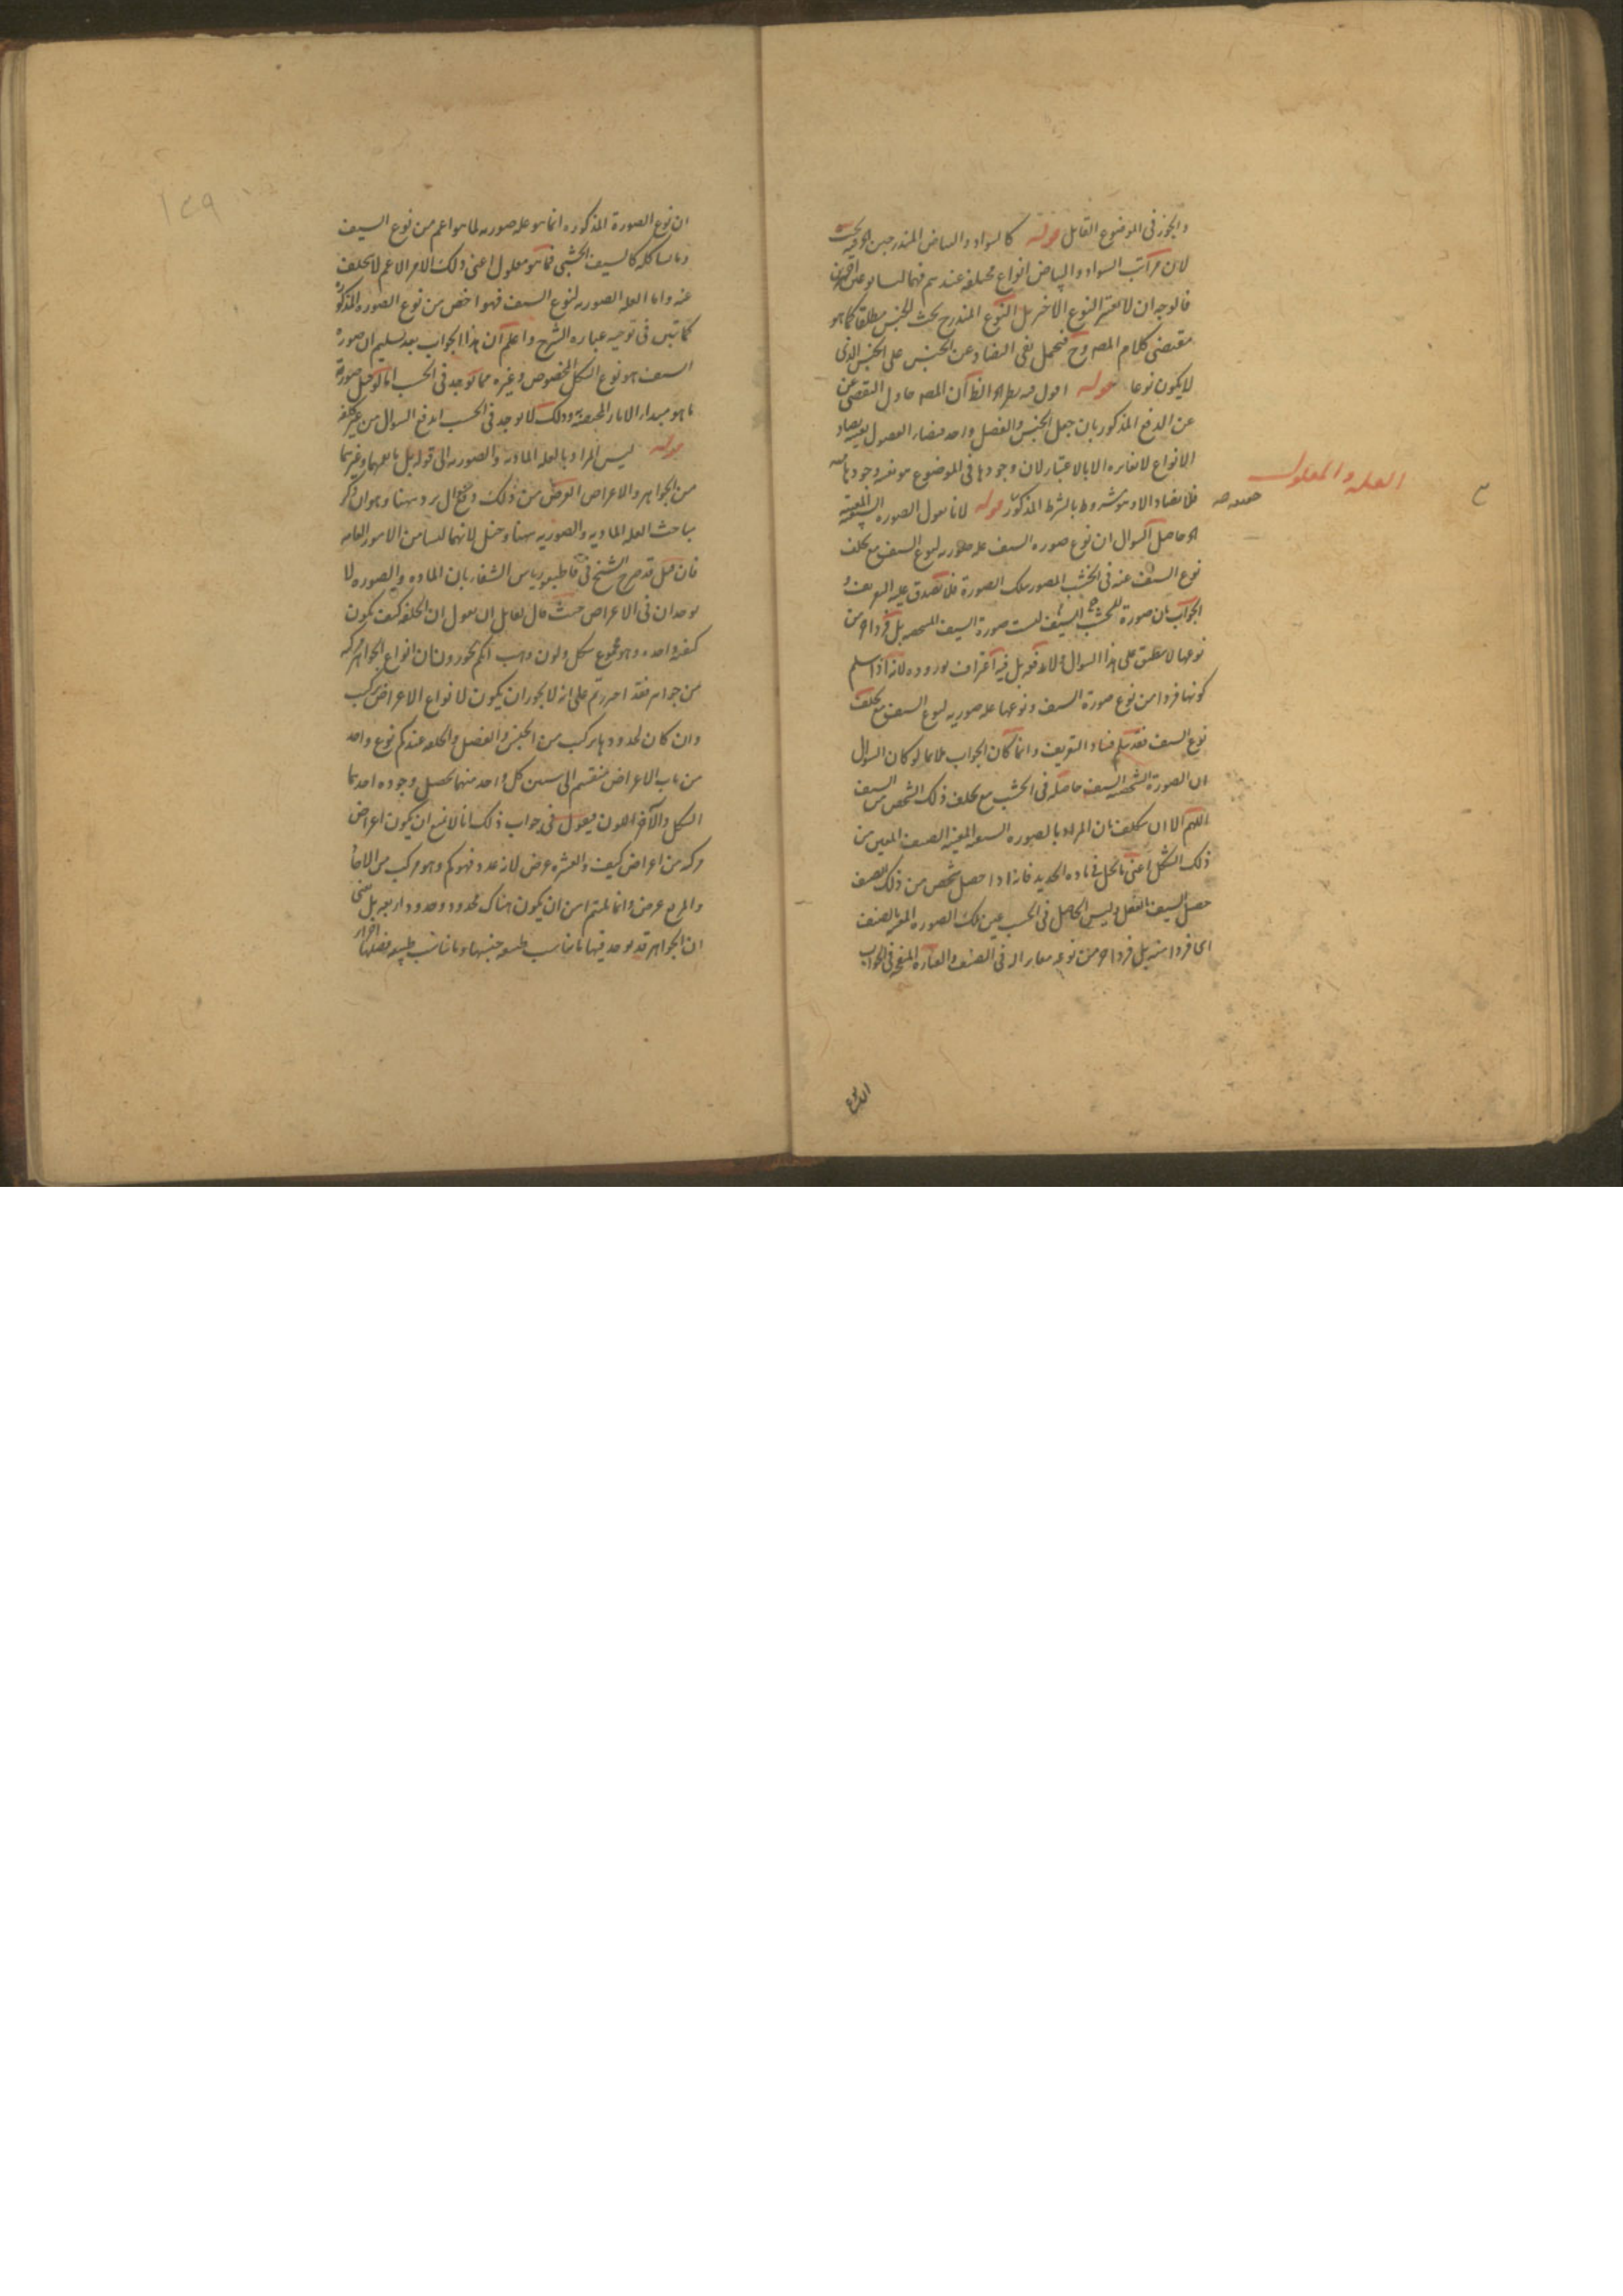 والجزء في الموضوع القابل قوله كالسواد والبياض المندرجين
لان مراتب السواد والبياض انواع مختلفة عندهم فهما ليسا نوعين
فالوجه ان لا يعتبر النوع الاخير بل النوع المندرج تحت الجنس مطلقا كما هو
مقتضى كلام المصـ وح فيحمل نفى التضاد عن الجنس على الجنس الذى
لا يكون نوعا قوله اقول فيه نظر الظ ان المصـ حاول التفصى
عن الدفع المذكور بان جعل الجنس والفصل واحد فتضاد الفصول
الانواع لا تغايره الا بالاعتبار لان وجودها فى الموضوع هو نفس وجودها
فلا تضاد الا وهو مشروط بالشرط المذكور قوله لانا نقول الصورة السيفية
العلة والمعلول
حاصل السوال ان نوع صورة السيف علة صورية لنوع السيف مع تخلف
نوع السيف عنه فى الخشب المصور بتلك الصورة فلا تصدق عليه التعريف و
الجواب بان صورة الخشب السيف ليست صورة السيف بل فرد اخر من
نوعها لا ينطبق على هذا السوال ولا يدفعه بل فيه اعتراف بوروده لانه اذا سلم
كونها فردا من نوع صورة السيف ونوعها علة صورية لنوع السيف مع تخلف
نوع السيف فقد سلم فساد التعريف وانما كان الجواب ملائما لو كان السوال
ان الصورة الشخصية للسيف حاصلة فى الخشب مع تخلف ذلك الشخص من السيف
اللهم الا ان يتكلف بان المراد بالصورة السيفية المعينة الصنف المعين من
ذلك الشكل اعنى ما يحل فى مادة الحديد فانه اذا حصل شخص من ذلك الصنف
حصل السيف بالفعل وليس الحاصل فى الخشب عين تلك الصورة المعينة الصنف
اى فردا منه بل فردا اخر من نوعه مغايرا له فى الصنف والعبارة المنقحة فى الجواب
ان نوع
ان نوع الصورة المذكورة انما هو علة صورية لما هو اعم من نوع السيف
وما يشاكله كالسيف الخشبى فما هو معلول اعنى ذلك الامر الاعم لا يتخلف
عنه واما العلة الصورية لنوع السيف فهو اخص من نوع الصورة المذكورة
كما تبين فى توجيه عبارة الشرح واعلم ان هذا الجواب بعد تسليم ان صورة
السيف هو نوع الشكل المخصوص وغيره مما توجد فى الخشب اما لو جعل صورته
ما هو مبدا الاثار المختصة به وذلك لا يوجد فى الخشب اندفع السوال من غير كلفة
قوله ليس المراد بالعلة المادية والصورية الى قوله بل ما يعمهما وغيرهما
من الجواهر والاعراض الغرض من ذلك دفع ما يرد ههنا وهو ان ذكر
مباحث العلة المادية والصورية ههنا دخيل لانهما ليسا من الامور العامة
فان قيل قد صرح الشيخ فى قاطيغورياس الشفاء بان المادة والصورة لا
توجدان فى الاعراض حيث قال لقايل ان يقول ان الخلقة كيف تكون
كيفية واحدة وهو مجموع شكل ولون وهب انكم تجوزون ان انواع الجواهر مركبة
من جواهر فقد اصررتم على انه لا يجوز ان يكون لانواع الاعراض تركيب
وان كان لحدودها تركيب من الجنس والفصل والخلقة عندكم نوع واحد
من باب الاعراض منقسم الى شيئين كل واحد منهما يحصل وجوده احدهما
الشكل والآخر اللون فيقول فى جواب ذلك انا لا نمنع ان يكون اعراض
مركبة من اعراض كيف والعشرة عرض لانه عدد فهو كم وهو مركب من الاحاد
والمربع عرض وانما يلتئم من ان يكون هناك محدود وحدود اربعة بل
ان الجواهر قد يوجد فيها ما يناسب طبيعة جنسها وما يناسب طبيعة فصلها